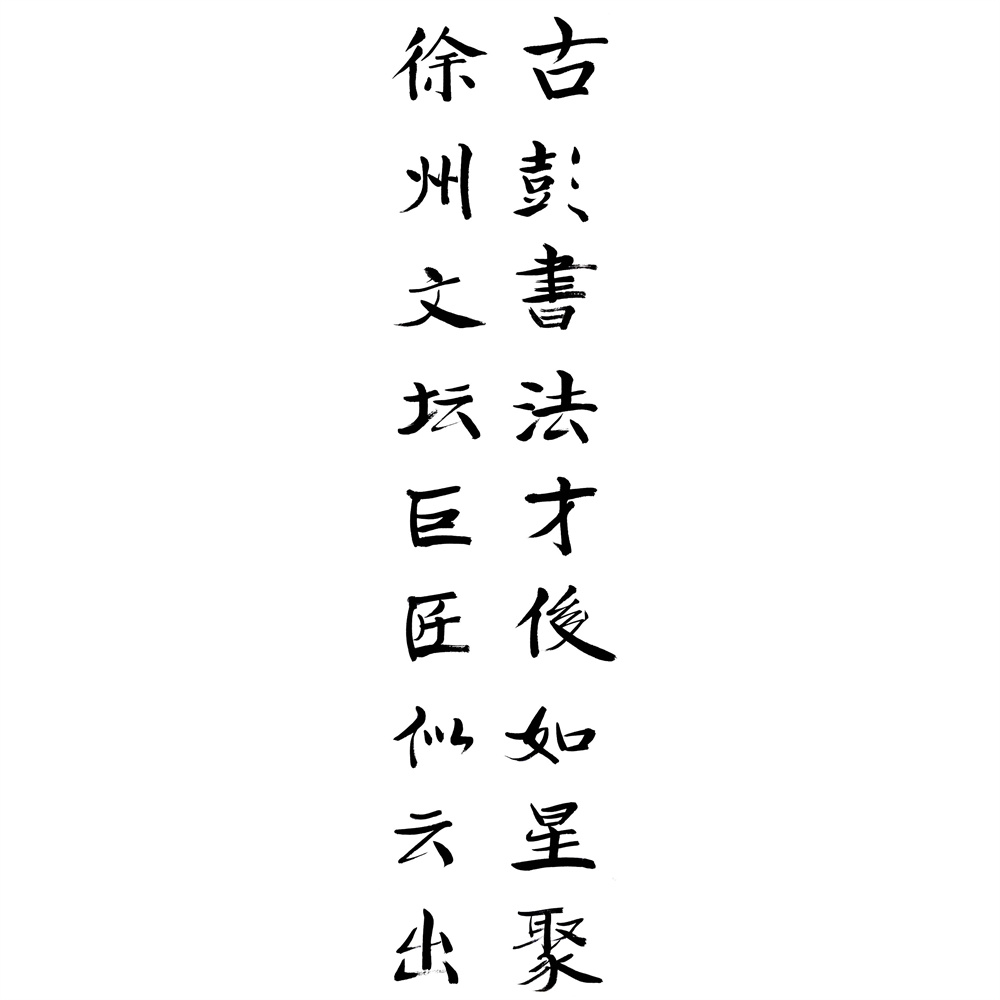 古彭書法才俊如星聚
徐州文坛巨匠似云出